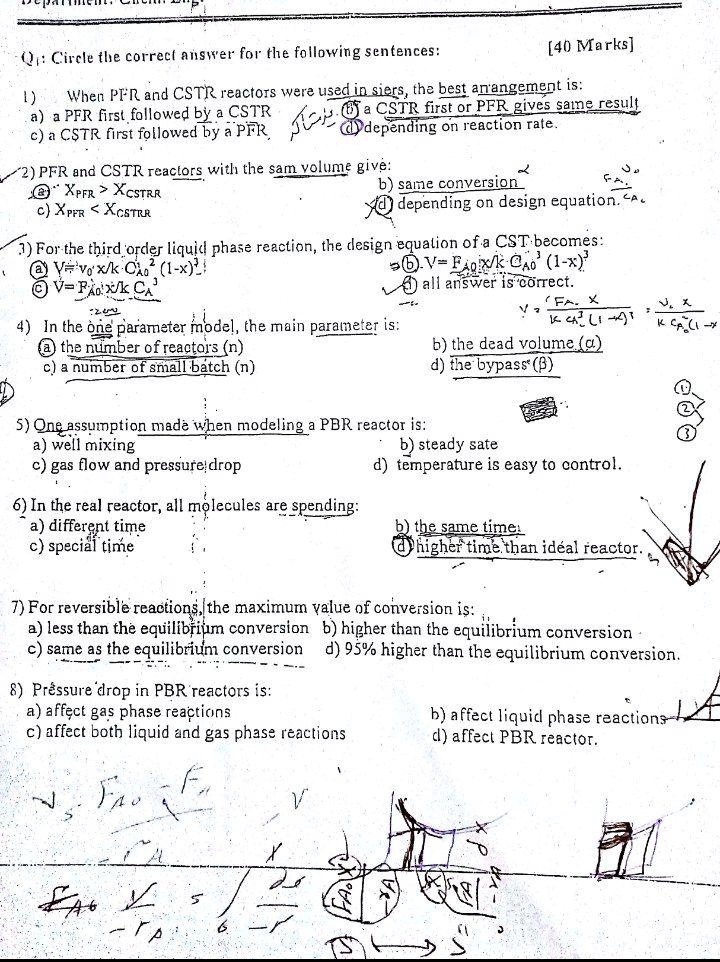 Q1: Circle the correct answer for the following sentences: [40 Marks]
1) When PFR and CSTR reactors were used in siers, the best arrangement is:
a) a PFR first followed by a CSTR b) a CSTR first or PFR gives same result
c) a CSTR first followed by a PFR d) depending on reaction rate.
2) PFR and CSTR reactors with the sam volume give:
a) XPFR > XCSTRR b) same conversion
c) XPFR < XCSTRR d) depending on design equation.
3) For the third order liquid phase reaction, the design equation of a CST becomes:
a) V= vo x/k CA0² (1-x)³ b) V= FAo x/k CA0³ (1-x)³
c) V= FAo x/k CA³ d) all answer is correct.
V = FA. X / k CA.³ (1-x)³ =
4) In the one parameter model, the main parameter is:
a) the number of reactors (n) b) the dead volume (α)
c) a number of small batch (n) d) the bypass (β)
1
2
3
5) One assumption made when modeling a PBR reactor is:
a) well mixing b) steady sate
c) gas flow and pressure drop d) temperature is easy to control.
6) In the real reactor, all molecules are spending:
a) different time b) the same time
c) special time d) higher time than ideal reactor.
7) For reversible reactions, the maximum value of conversion is:
a) less than the equilibrium conversion b) higher than the equilibrium conversion
c) same as the equilibrium conversion d) 95% higher than the equilibrium conversion.
8) Pressure drop in PBR reactors is:
a) affect gas phase reactions b) affect liquid phase reactions
c) affect both liquid and gas phase reactions d) affect PBR reactor.
FAo - FA
- rA
V